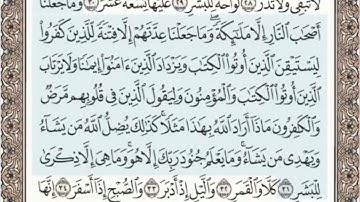 لَا تُبْقِى وَلَا تَذَرُ ٢٨ لَوَّاحَةٌ لِّلْبَشَرِ ٢٩ عَلَيْهَا تِسْعَةَ عَشَرَ ٣٠ وَمَا جَعَلْنَآ
أَصْحَٰبَ ٱلنَّارِ إِلَّا مَلَٰٓئِكَةً ۙ وَمَا جَعَلْنَا عِدَّتَهُمْ إِلَّا فِتْنَةً لِّلَّذِينَ كَفَرُوا۟
لِيَسْتَيْقِنَ ٱلَّذِينَ أُوتُوا۟ ٱلْكِتَٰبَ وَيَزْدَادَ ٱلَّذِينَ ءَامَنُوٓا۟ إِيمَٰنًا ۙ وَلَا يَرْتَابَ
ٱلَّذِينَ أُوتُوا۟ ٱلْكِتَٰبَ وَٱلْمُؤْمِنُونَ ۙ وَلِيَقُولَ ٱلَّذِينَ فِى قُلُوبِهِم مَّرَضٌ
وَٱلْكَٰفِرُونَ مَاذَآ أَرَادَ ٱللَّهُ بِهَٰذَا مَثَلًا ۚ كَذَٰلِكَ يُضِلُّ ٱللَّهُ مَن يَشَآءُ
وَيَهْدِى مَن يَشَآءُ ۚ وَمَا يَعْلَمُ جُنُودَ رَبِّكَ إِلَّا هُوَ ۚ وَمَا هِىَ إِلَّا ذِكْرَىٰ
لِلْبَشَرِ ٣١ كَلَّا وَٱلْقَمَرِ ٣٢ وَٱلَّيْلِ إِذْ أَدْبَرَ ٣٣ وَٱلصُّبْحِ إِذَآ أَسْفَرَ ٣٤ إِنَّهَا